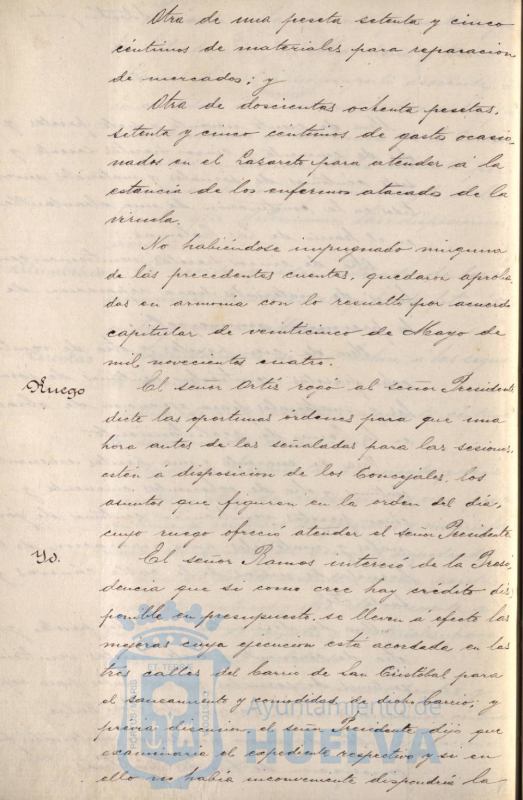 Otra de una peseta setenta y cinco
céntimos de materiales para reparacion
de mercados; y
Otra de doscientas ochenta pesetas,
setenta y cinco centimos de gastos ocasio-
nados en el Lazareto para atender á la
estancia de los enfermos atacados de la
viruela.
No habiéndose impugnado ninguna
de las precedentes cuentas, quedaron aproba-
das en armonia con lo resuelto por acuerdo
capitular de veinticinco de Mayo de
mil novecientos cuatro.
Ruego El señor Ortiz rogó al señor Presidente
dicte las oportunas órdenes para que una
hora antes de las señaladas para las sesiones,
estén á disposicion de los Concejales, los
asuntos que figuren en la orden del dia,
cuyo ruego ofreció atender el señor Presidente
Yd. El señor Ramos interesó de la Presi-
dencia que si como cree hay crédito dis-
ponible en presupuesto, se lleven á efecto las
mejoras cuya ejecucion está acordada en las
tres calles del barrio de San Cristobal para
el saneamiento y comodidad de dicho barrio; y
previa discusion el señor Presidente dijo que
examinaria el expediente respectivo y si en
ello no habia inconveniente dispondria la
Ayuntamiento de
HUELVA
PORTUS MARIS
ET TERRAE
CUSTODIA